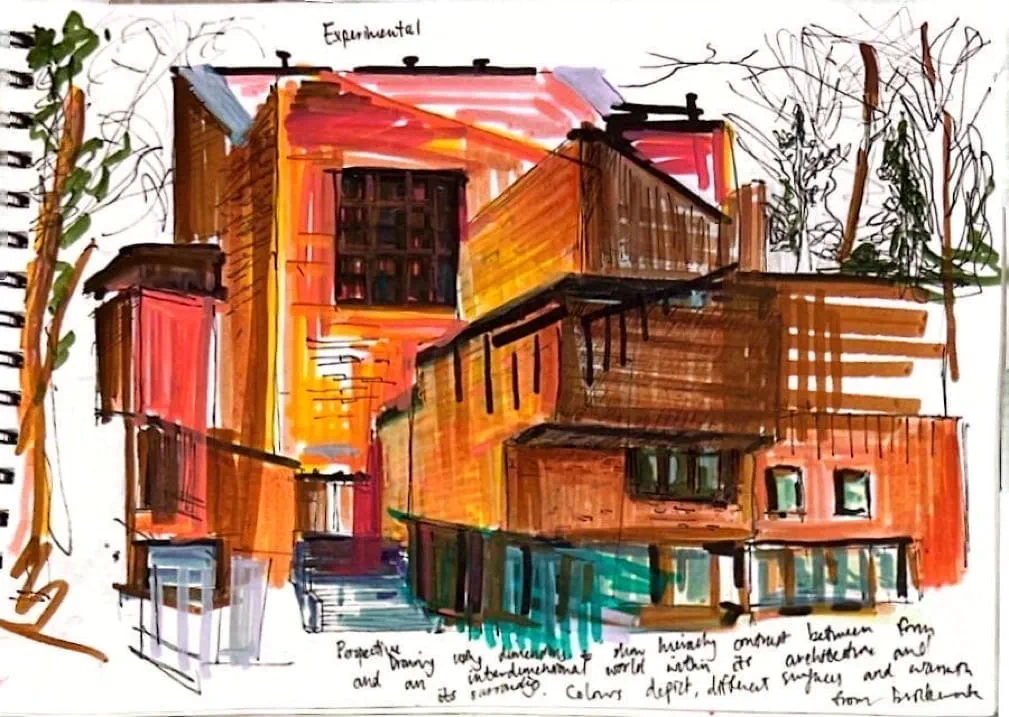 Experimental
Perspective drawing using dimensions to show hierarchy contrast between form
and an interdimensional world within its architecture and
its surroundings. Colours depict, different surfaces and warmth
from brickwork